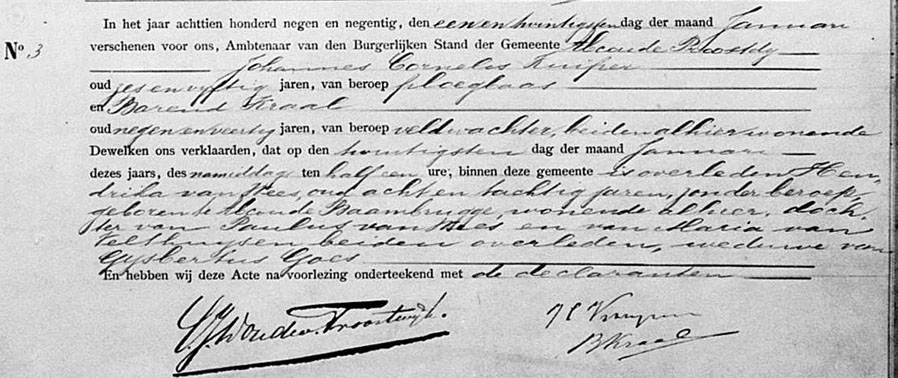 In het jaar achttien honderd negen en negentig, den een en twintigsten dag der maand Januari
No 3
verschenen voor ons, Ambtenaar van den Burgerlijken Stand der Gemeente Abcoude Proostdy
Johannes Cornelis Kuiper
oud zes en vyftig jaren, van beroep ploegbaas
en Barend Kraal
oud negen en veertig jaren, van beroep veldwachter, beiden alhier wonende
Dewelken ons verklaarden, dat op den twintigsten dag der maand Januari
dezes jaars, des namiddags ten half een ure, binnen deze gemeente is overleden Hen,
drika van Rees, oud acht en tachtig jaren, zonder beroep,
geboren te Abcoude Baambrugge, wonende alhier, doch,
ter van Paulus van Rees en van Maria van
Velthuysen beiden overleden, weduwe van
Gysbertus Goes
En hebben wij deze Acte na voorlezing onderteekend met de declaranten
JC Kuiper
BKraal